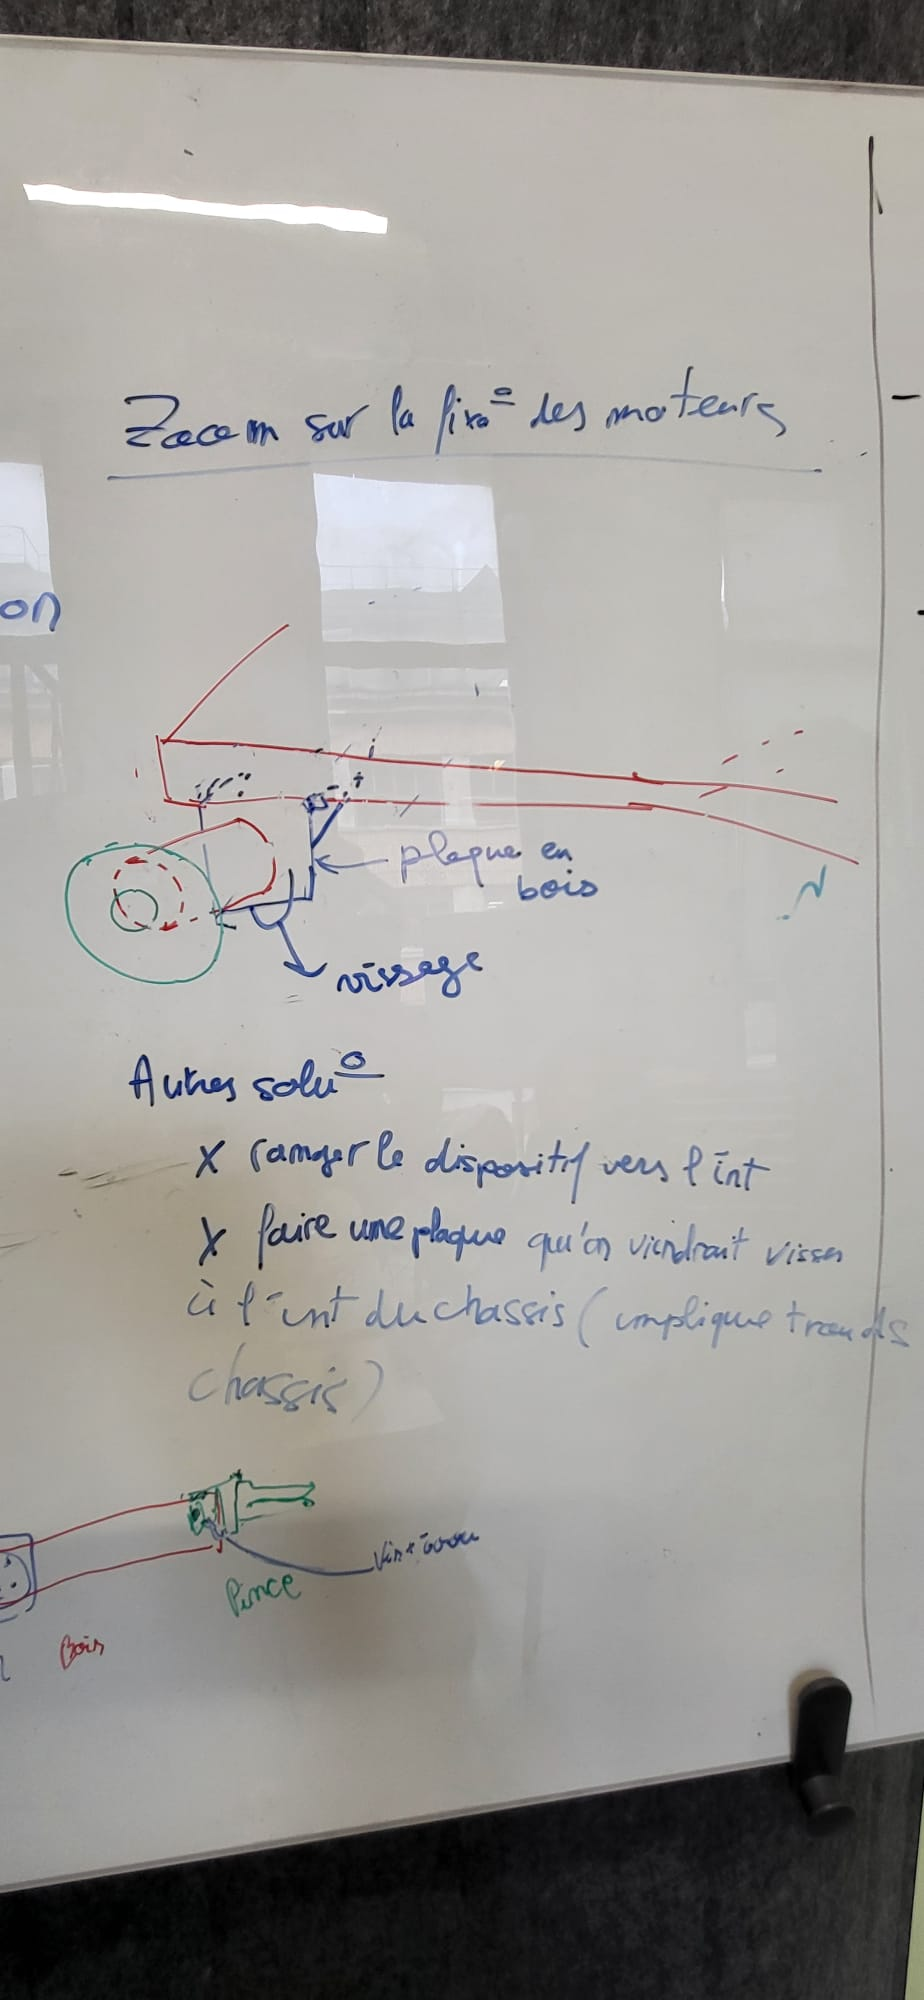 Zoom sur la fixa° des moteurs
on
plaque en
bois
vissage
Autres solu°
x ranger le dispositif vers l'int
x faire une plaque qu'on viendrait visser
à l'int du chassis (implique trou ds
chassis)
Pince
Bois